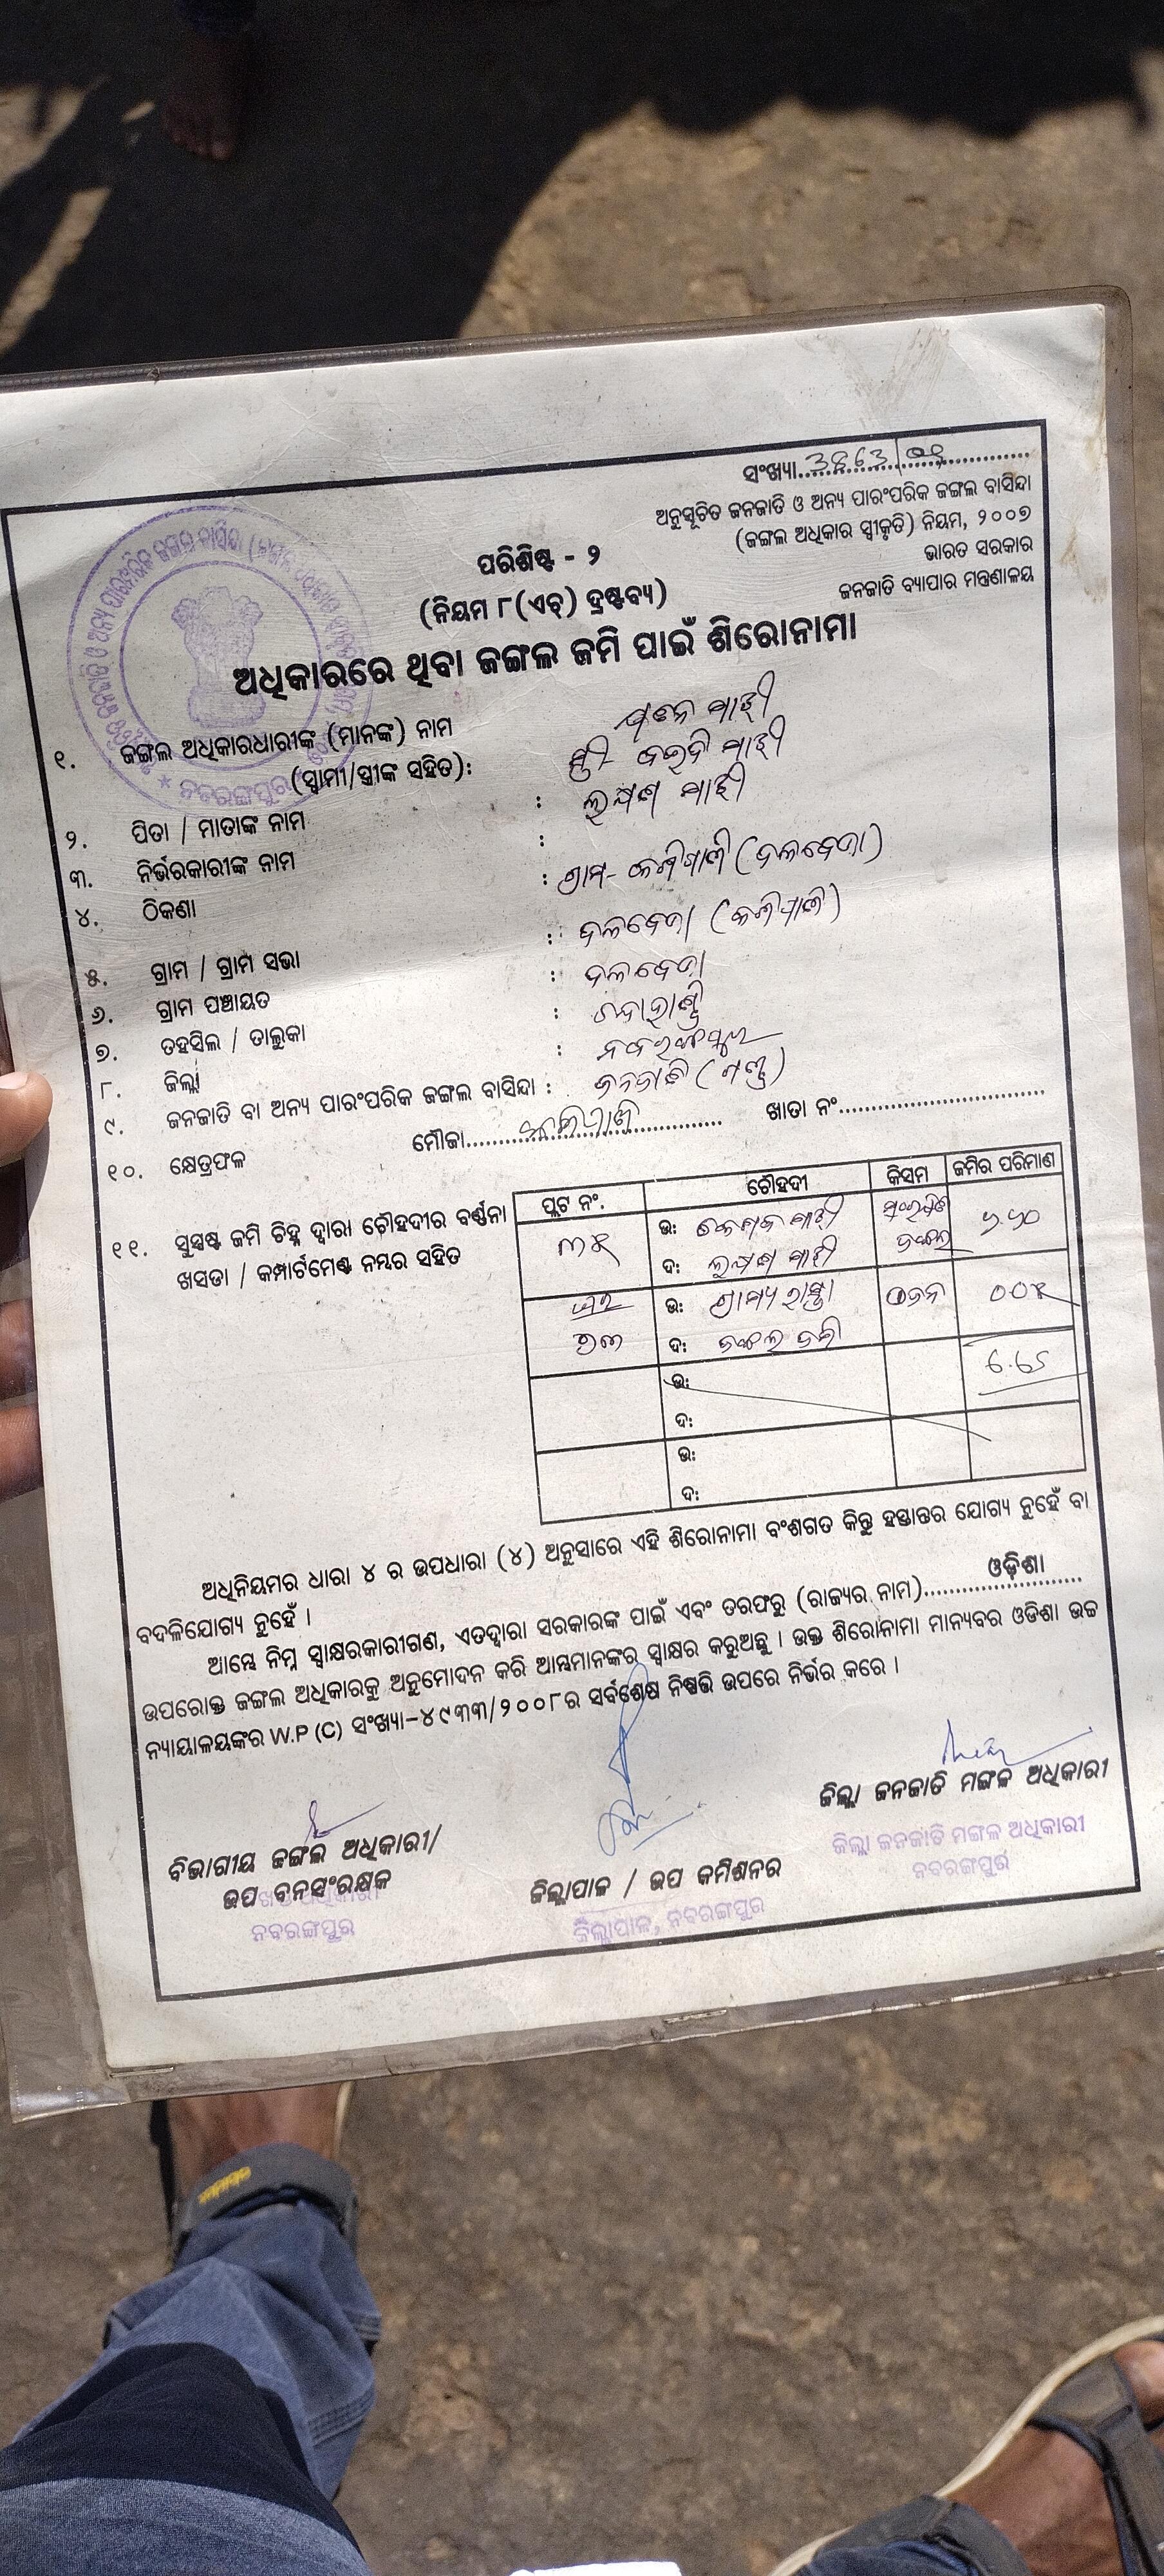 ସଂଖ୍ୟା
ଅନୁସୂଚିତ ଜନଜାତି ଓ ଅନ୍ୟ ପାରଂପରିକ ଜଙ୍ଗଲ ବାସିନ୍ଦା
(ଜଙ୍ଗଲ ଅଧିକାର ସ୍ୱୀକୃତି) ନିୟମ, ୨୦୦୭
ଭାରତ ସରକାର
ଜନଜାତି ବ୍ୟାପାର ମନ୍ତ୍ରଣାଳୟ
ପରିଶିଷ୍ଟ - ୨
(ନିୟମ ୮(ଏଚ୍) ଦ୍ରଷ୍ଟବ୍ୟ)
ଅଧିକାରରେ ଥିବା ଜଙ୍ଗଲ ଜମି ପାଇଁ ଶିରୋନାମା
୧. ଜଙ୍ଗଲ ଅଧିକାରଧାରୀଙ୍କ (ମାନଙ୍କ) ନାମ ମାଝୀ
(ସ୍ୱାମୀ/ସ୍ତ୍ରୀଙ୍କ ସହିତ): ମାଝୀ
୨. ପିତା / ମାତାଙ୍କ ନାମ : ଲକ୍ଷ୍ମଣ ମାଝୀ
୩. ନିର୍ଭରକାରୀଙ୍କ ନାମ :
୪. ଠିକଣା : ଗ୍ରାମ- (ଦଳବେଡା)
୫. ଗ୍ରାମ / ଗ୍ରାମ ସଭା : ଦଳବେଡା
୬. ଗ୍ରାମ ପଞ୍ଚାୟତ : ଦଳବେଡା
୭. ତହସିଲ / ତାଲୁକା : ଚନ୍ଦାହାଣ୍ଡି
୮. ଜିଲ୍ଲା : ନବରଙ୍ଗପୁର
୯. ଜନଜାତି ବା ଅନ୍ୟ ପାରଂପରିକ ଜଙ୍ଗଲ ବାସିନ୍ଦା : ଜନଜାତି (ଗଣ୍ଡ)
୧୦. କ୍ଷେତ୍ରଫଳ ମୌଜା ଖାତା ନଂ
୧୧. ସୁସ୍ପଷ୍ଟ ଜମି ଚିହ୍ନ ଦ୍ୱାରା ଚୌହଦୀର ବର୍ଣ୍ଣନା
ଖସଡା / କମ୍ପାର୍ଟମେଣ୍ଟ ନମ୍ବର ସହିତ
ପ୍ଲଟ ନଂ. ଚୌହଦୀ କିସମ ଜମିର ପରିମାଣ
ଉ: ମାଝୀ
ଦ: ଲକ୍ଷ୍ମଣ ମାଝୀ ଜଙ୍ଗଲ
ଉ: ଗ୍ରାମ୍ୟ ରାସ୍ତା
ଦ: ଜଙ୍ଗଲ ଜମି
ଉ: 6.65
ଦ:
ଉ:
ଦ:
ଅଧିନିୟମର ଧାରା ୪ ର ଉପଧାରା (୪) ଅନୁସାରେ ଏହି ଶିରୋନାମା ବଂଶଗତ କିନ୍ତୁ ହସ୍ତାନ୍ତର ଯୋଗ୍ୟ ନୁହେଁ ବା
ବଦଳିଯୋଗ୍ୟ ନୁହେଁ ।
ଆମ୍ଭେ ନିମ୍ନ ସ୍ୱାକ୍ଷରକାରୀଗଣ, ଏତଦ୍ୱାରା ସରକାରଙ୍କ ପାଇଁ ଏବଂ ତରଫରୁ (ରାଜ୍ୟର ନାମ) ଓଡ଼ିଶା
ଉପରୋକ୍ତ ଜଙ୍ଗଲ ଅଧିକାରକୁ ଅନୁମୋଦନ କରି ଆମ୍ଭମାନଙ୍କର ସ୍ୱାକ୍ଷର କରୁଅଛୁ । ଉକ୍ତ ଶିରୋନାମା ମାନ୍ୟବର ଓଡିଶା ଉଚ୍ଚ
ନ୍ୟାୟାଳୟଙ୍କର W.P (C) ସଂଖ୍ୟା-୪୯୩୩/୨୦୦୮ର ସର୍ବଶେଷ ନିଷ୍ପତ୍ତି ଉପରେ ନିର୍ଭର କରେ ।
ବିଭାଗୀୟ ଜଙ୍ଗଲ ଅଧିକାରୀ/
ଉପ ବନସଂରକ୍ଷକ
ନବରଙ୍ଗପୁର
ଜିଲ୍ଲାପାଳ / ଉପ କମିଶନର
ଜିଲ୍ଲାପାଳ, ନବରଙ୍ଗପୁର
ଜିଲ୍ଲା ଜନଜାତି ମଙ୍ଗଳ ଅଧିକାରୀ
ଜିଲ୍ଲା ଜନଜାତି ମଙ୍ଗଳ ଅଧିକାରୀ
ନବରଙ୍ଗପୁର